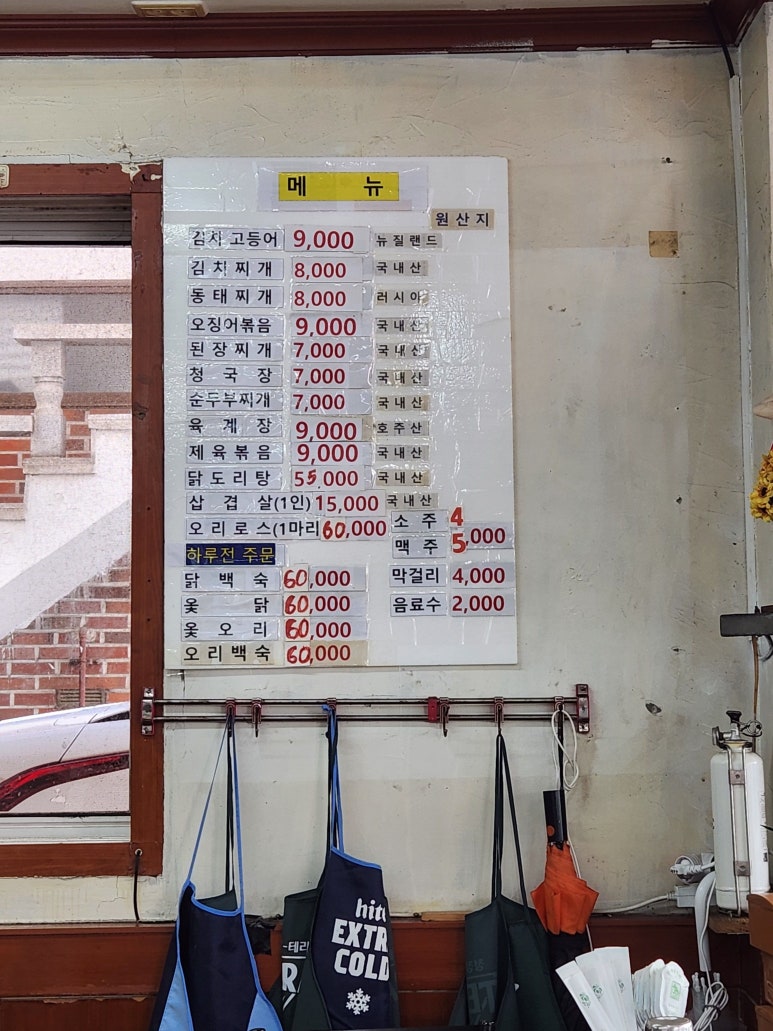 메 뉴
원산지
김치고등어 9,000 뉴질랜드
김치찌개 8,000 국내산
동태찌개 8,000 러시아
오징어볶음 9,000 국내산
된장찌개 7,000 국내산
청국장 7,000 국내산
순두부찌개 7,000 국내산
육계장 9,000 호주산
제육볶음 9,000 국내산
닭도리탕 55,000 국내산
삼겹살(1인) 15,000 국내산
오리로스(1마리 60,000
소주 4
맥주 5,000
하루전 주문
닭백숙 60,000 막걸리 4,000
옻닭 60,000 음료수 2,000
옻오리 60,000
오리백숙 60,000
hite
EXTR
COLD
-테라